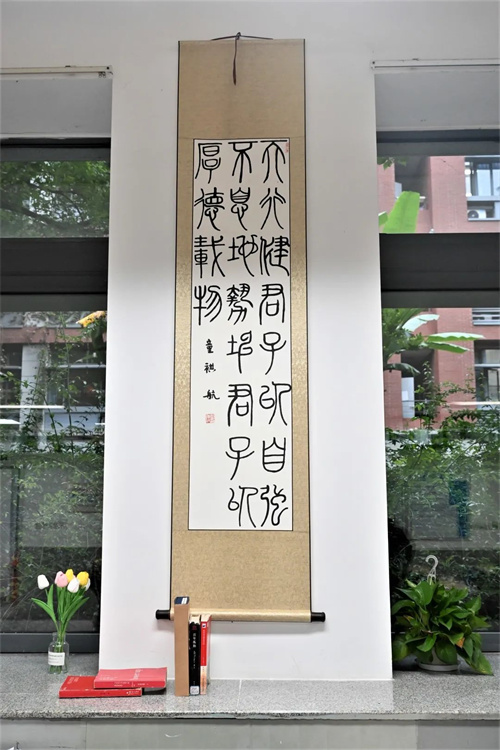 天行健君子以自强
不息地势坤君子以
厚德载物
童祺航